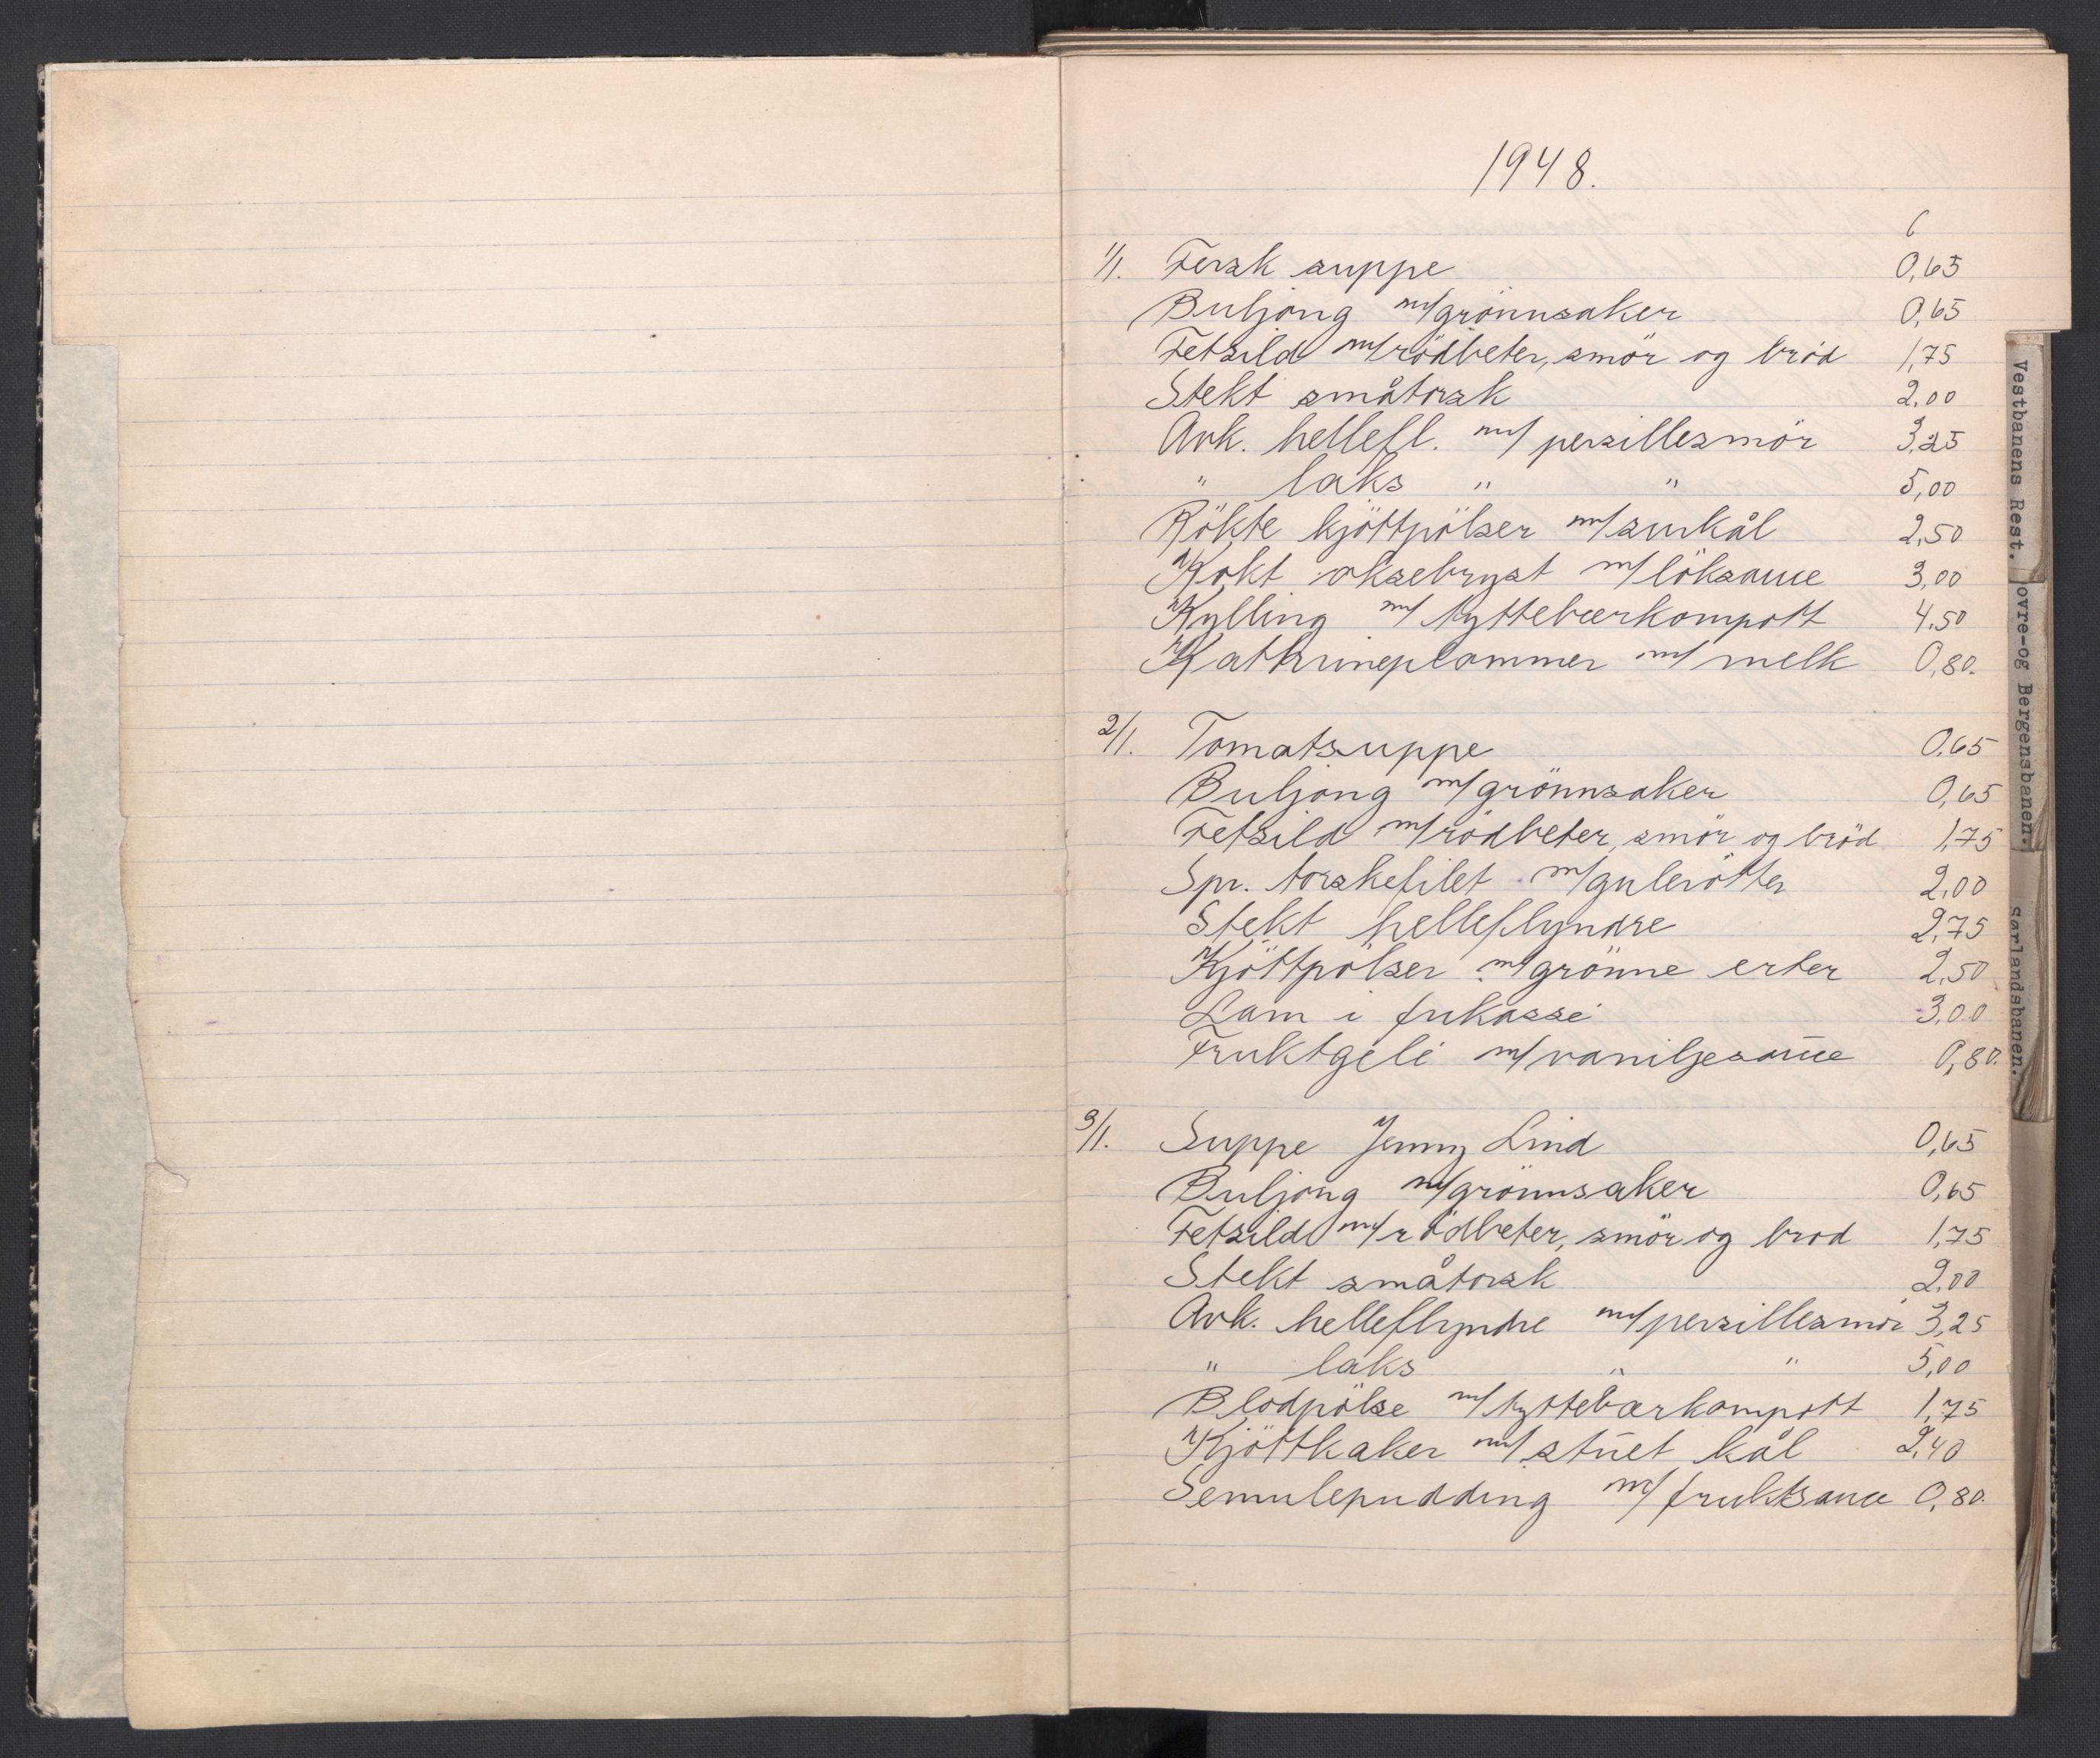 1948.
6
1/1. Fersk suppe 0,65
Buljong m/grönnsaker 0,65
Fetsild m/rödbeter, smör og bröd 1,75
Stekt småtorsk 2.00
Avk. hellefl. m/ persillesmör 3,25
" laks " " 5,00
Rökte kjöttpölser m/surkål 2,50
Kokt oksebryst m/löksaue 3,00
Kylling m/ tyttebærkompott 4.50
Kathrineplommer m/ melk 0,80.
2/1. Tomatsuppe 0.65
Buljong m/grönnsaker 0,65
Fetsild m/rödbeter, smör og bröd 1,75
Spr. torskefilet m/gulerötter 2,00
Stekt helleflyndre 2,75
Kjöttpölser m/grönne erter 2,50
Lam i frikassé 3,00
Fruktgelé m/vaniljesaue 0,80.
3/1. Suppe Jenny Lind 0,65
Buljong m/grönnsaker 0,65
Fetsild m/rödbeter, smör og brod 1,75
Stekt småtorsk 2.00
Avk. helleflyndre m/persillesmör 3,25
" laks " " 5,00
Blodpölse m/tyttebærkompott 1,75
Kjöttkaker m/stuet kål 2,40
Semulepudding m/fruktsaue 0,80.
Vestbanens Rest.
ovre-og Bergensbanen.
sørlandsbanen.